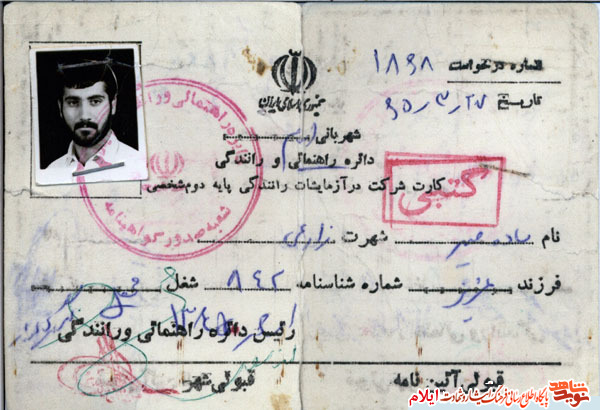 شماره درخواست ۱۸۹۸
جمهوری اسلامی ایران
تاریخ ۶۵/۳/۲۷
شهربانی
دائره راهنمائی و رانندگی
کارت شرکت در آزمایشات رانندگی پایه دوم شخصی
کتبی
نام شهرت زارعی
فرزند عزیز شماره شناسنامه ۸۴۲ شغل
رئیس دائره راهنمائی و رانندگی
قبولی آئین نامه
قبولی شهر
دایره راهنمائی و رانندگی
شعبه صدور گواهینامه
نوید شاهد
پایگاه اطلاع رسانی فرهنگ ایثار و شهادت ایلام